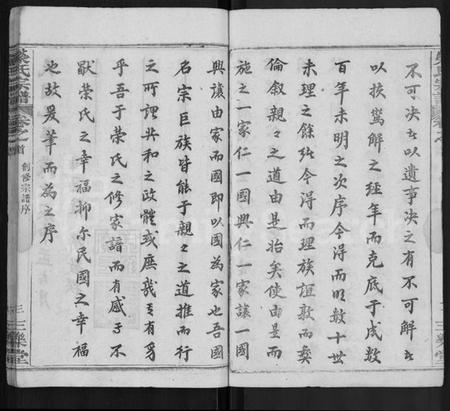 不可决者以遺事决之有不可解者
以挨篤解之經年而克底于成数
百年未明之次序今得而明数十世
未理之餘緒今得而理族誼敦而彝
倫叙親々之道由是治矣使由是而
施之一家仁一國興仁一家讓一國
興讓由家而國即以國為家也吾國
名宗巨族皆能于親々之道推而行
之所謂共和之政體或庶我乎有豸
乎吾于榮氏之修家譜而有感于不
榮氏之幸福抑尓民國之幸福
也故爰筆而為之序
榮氏宗譜 卷之首 創修宗譜序 三 三樂堂